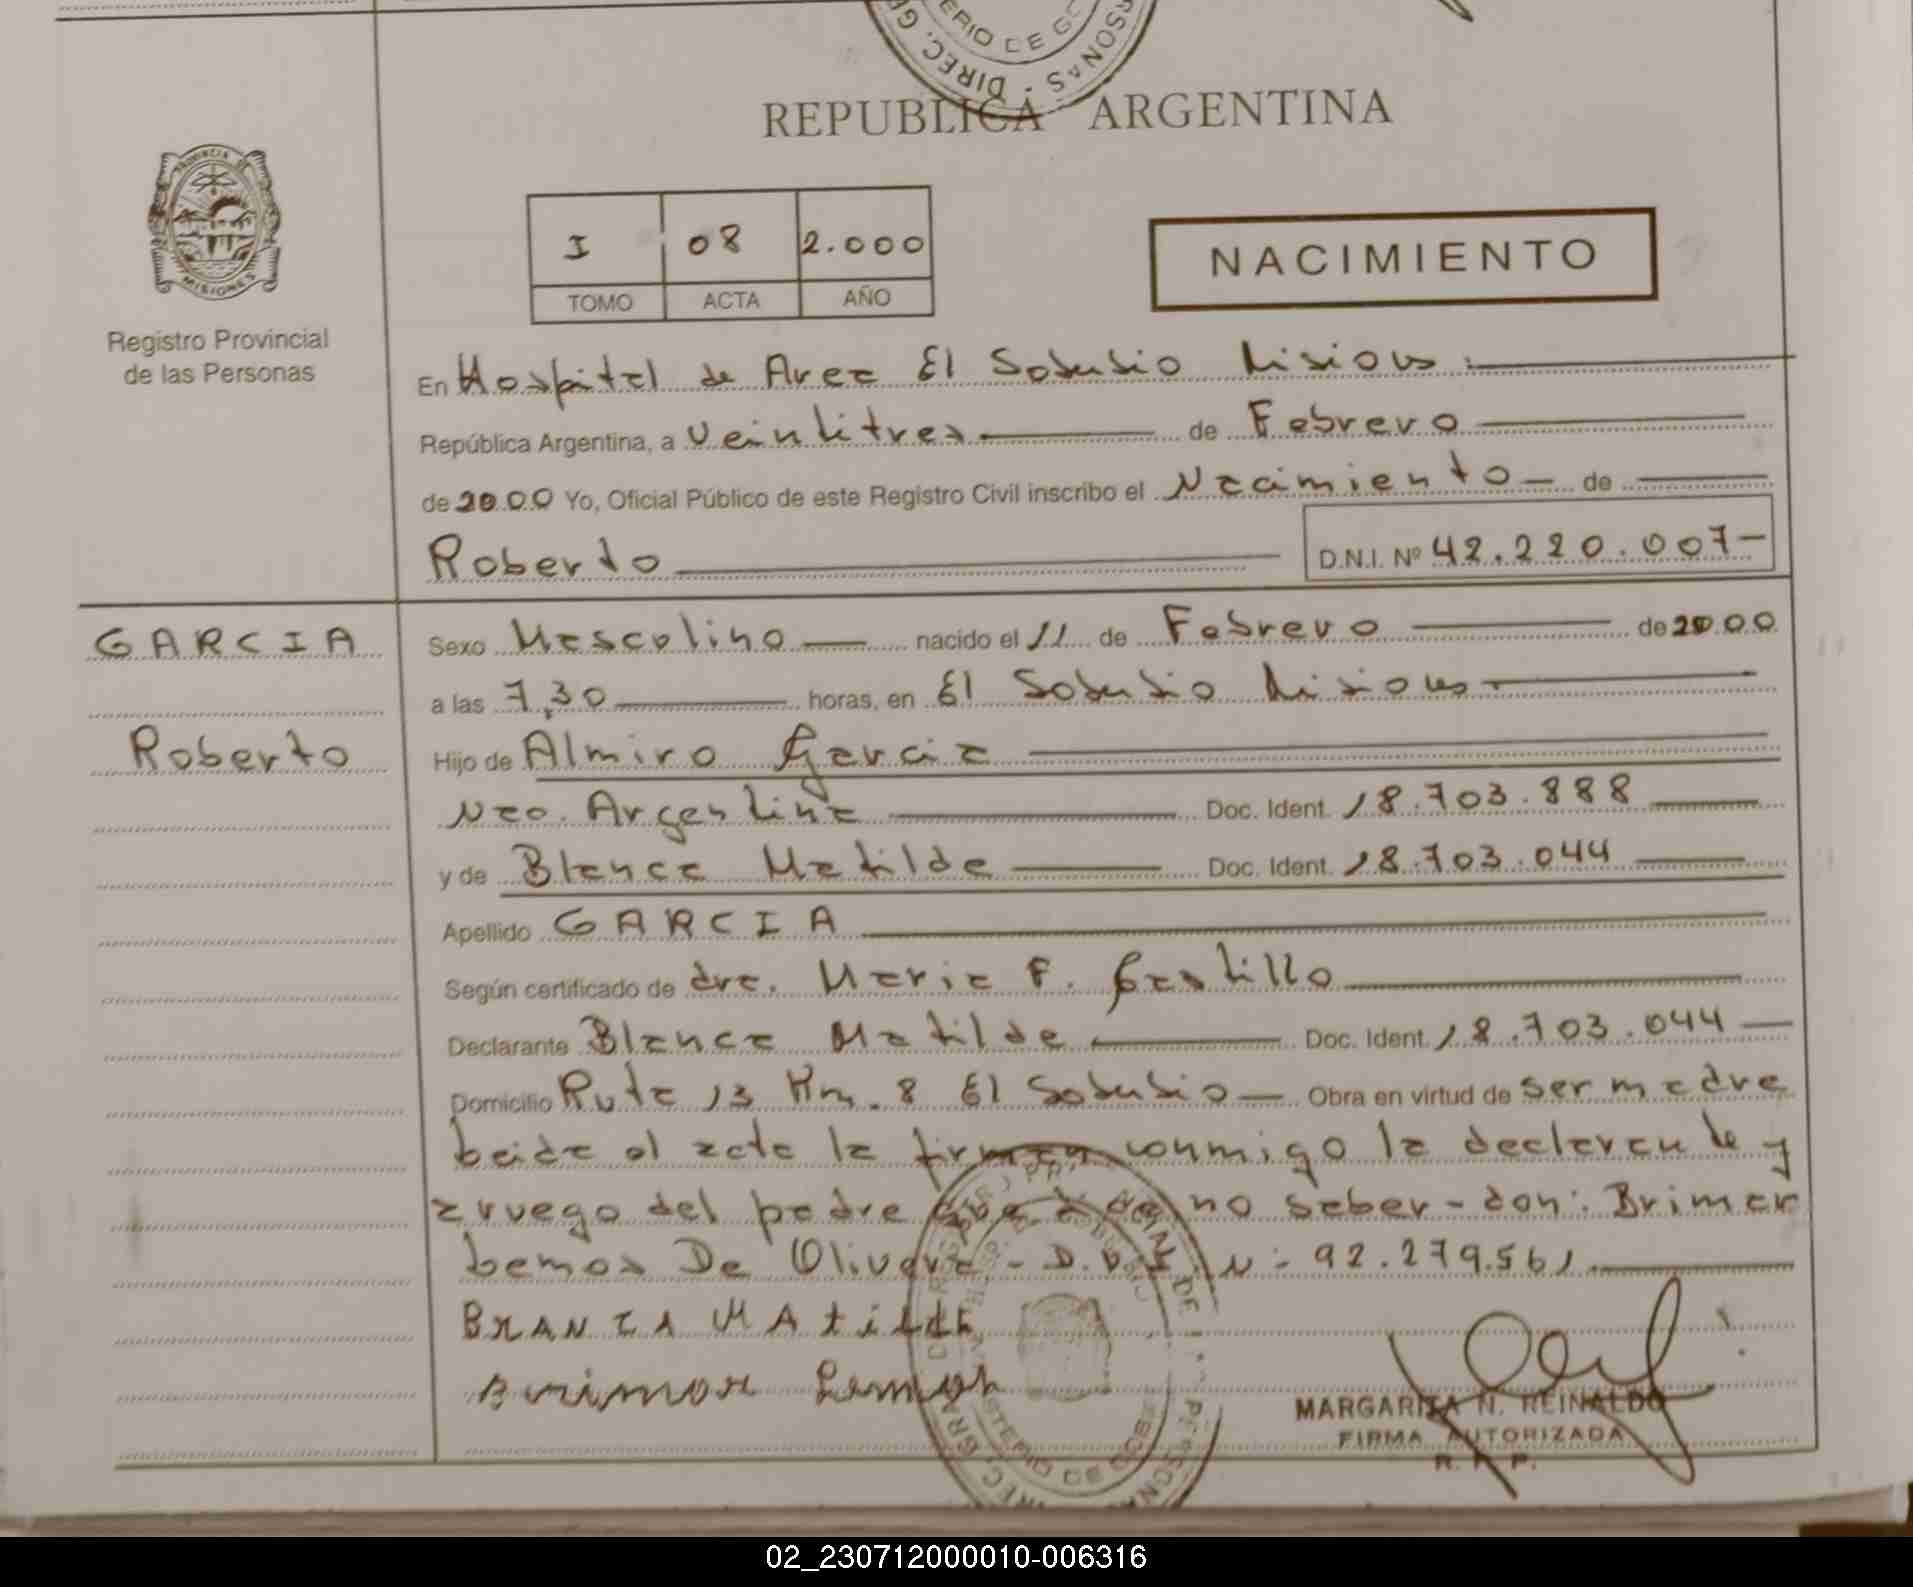 DIREC. GE
ERIO DE GO
RSONAS
REPUBLICA ARGENTINA
PROVINCIA DE
MISIONES
Registro Provincial
de las Personas
I 08 2.000
TOMO ACTA AÑO
NACIMIENTO
En Hospital de Area El Soberbio Misiones
República Argentina, a veintitres de Febrero
de 2000 Yo, Oficial Público de este Registro Civil inscribo el Nacimiento de
Roberto D.N.I. Nº 42.220.007-
GARCIA
Roberto
Sexo Masculino nacido el 11 de Febrero de 2000
a las 7,30 horas, en El Soberbio Misiones
Hijo de Almiro Garcia
Nac. Argentina Doc. Ident. 18.703.888
y de Blanca Matilde Doc. Ident. 18.703.044
Apellido GARCIA
Según certificado de dra. Maria F. Castillo
Declarante Blanca Matilde Doc. Ident. 18.703.044
Domicilio Ruta 13 Km. 8 El Soberbio Obra en virtud de ser madre
el acta la firman conmigo la declarante y
a ruego del padre no saber - don: Brimar
De Olivera - D.N.I. N: 92.279.561
MARGARITA N. REINALDO
FIRMA AUTORIZADA
R. P. P.
02_230712000010-006316